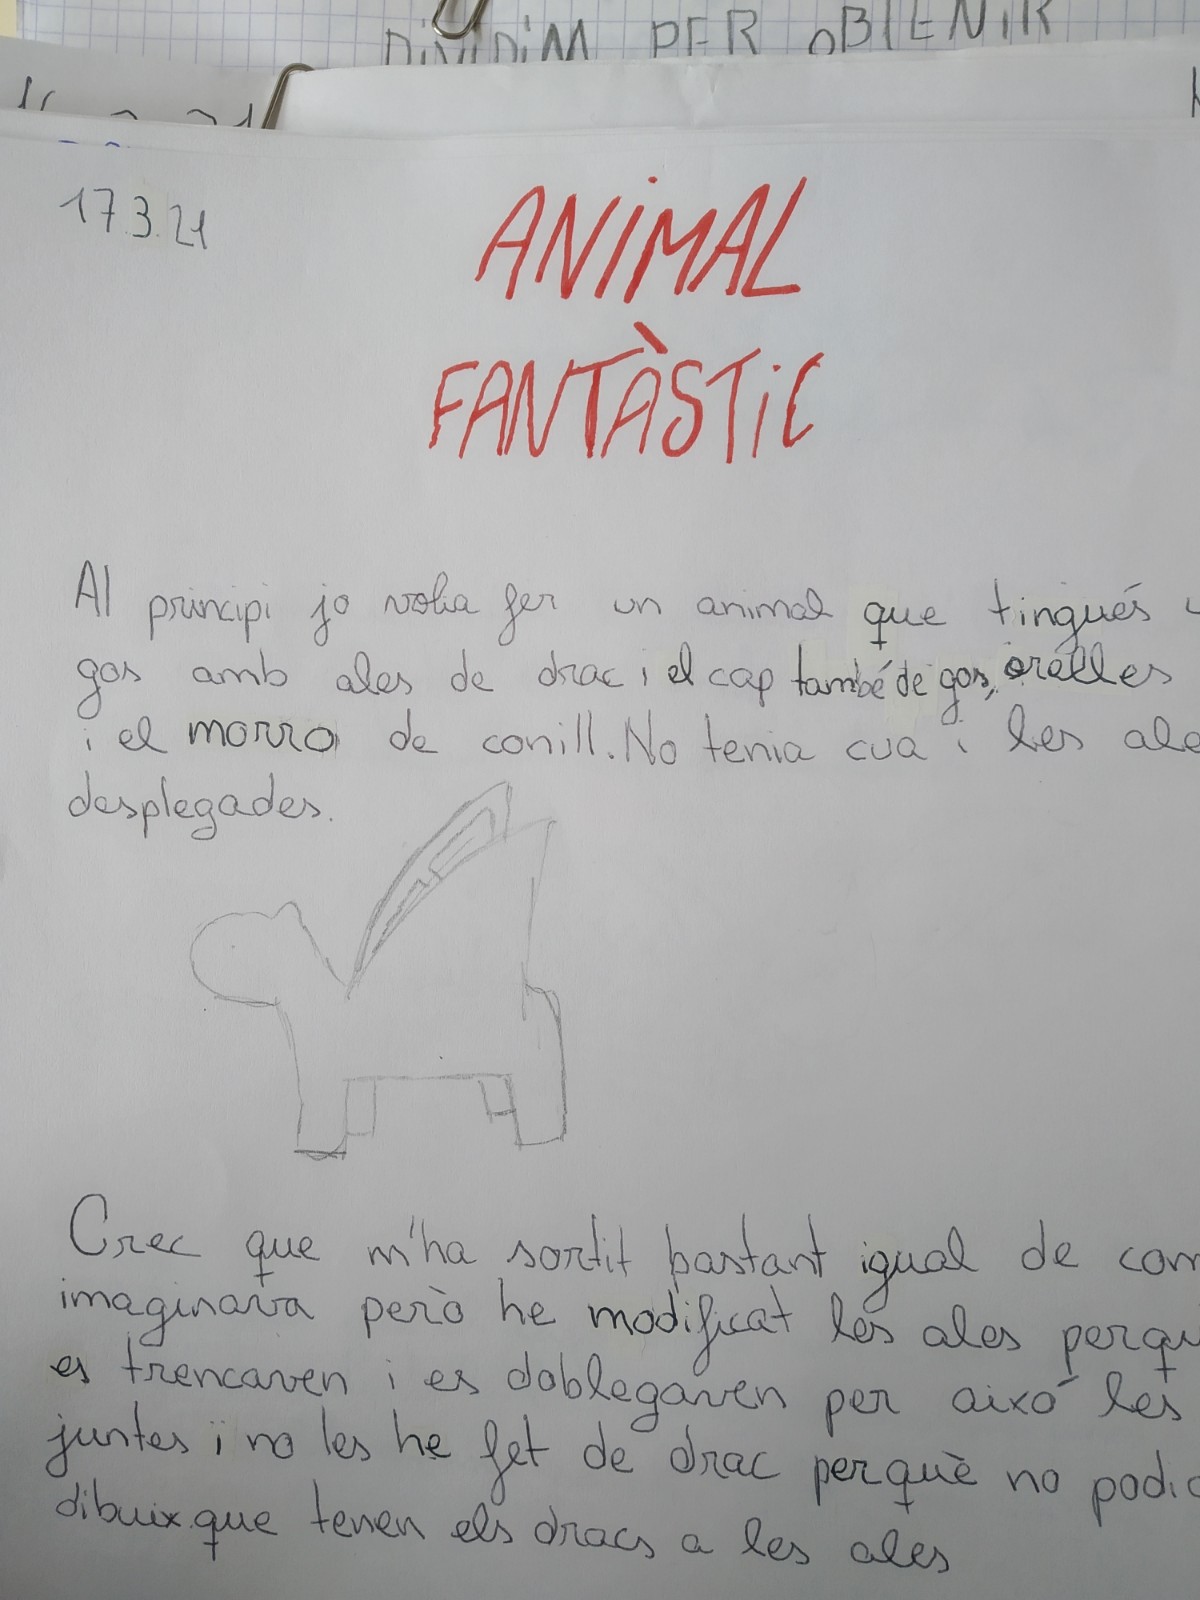 DIVIDIM PER OBTENIR
17.3.21
ANIMAL
FANTÀSTIC
Al principi jo volia fer un animal que tingués
gos amb ales de drac i el cap també de gos, orelles
i el morro de conill. No tenia cua i les ale
desplegades.
Crec que m'ha sortit bastant igual de com
imaginava però he modificat les ales perqu
es trencaven i es doblegaven per aixó les
juntes i no les he fet de drac perquè no podia
dibuix que tenen els dracs a les ales